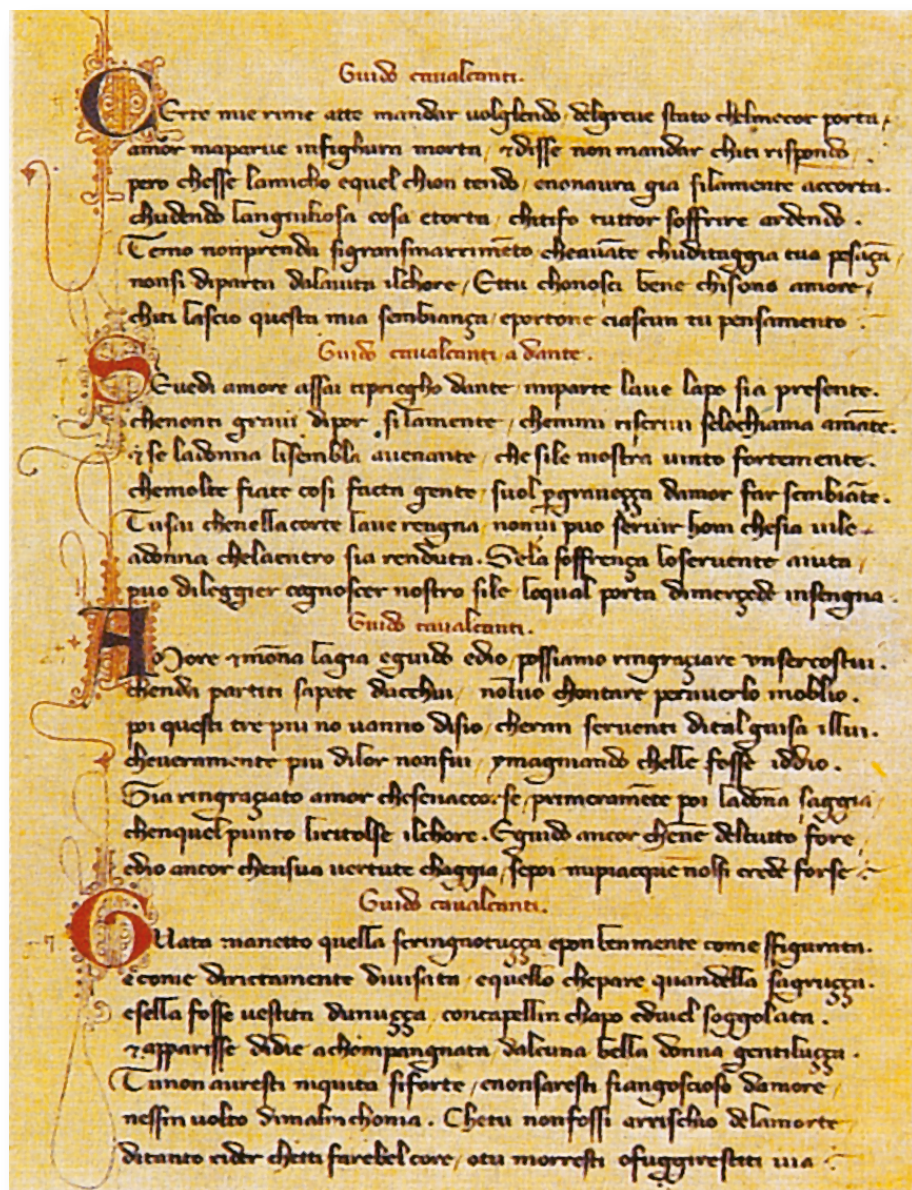 Guido caualcanti.
CErte mie rime atte mandar uolglendo / delgreue stato chelmecor porta /
amor maparue infighura morta / ⁊ disse non mandar chiti rispondo
pero chesse lamicho equel chion tendo / enonaura gia silamente accorta.
chudendo langiuliosa cosa etorta / chitifo tuttor soffrire ardendo .
Temo nonprenda sigransmarrimēto cheauāte chuditaggia tua pesāça /
nonsi diparta dalauita ilchore / Ettu chonosci bene chisono amore /
chiti lascio questa mia sembiança / eportone ciascun tu pensamento
Guido caualcanti a dante .
SEuedi amore assai tipriegho dante / inparte laue lapo sia presente .
chenonti graui dipor silamente / chemmi riscriui selochiama amāte .
⁊ se ladonna lisembla auenante / che sile mostra uinto fortemente .
chemolte fiate cosi facta gente / suol ꝑgraueçça damor far sembiāte .
Tusai chenella corte laue rengna / nonui puo seruir hom chesia uile
adonna chelaentro sia renduta . Sela soffrença loseruente aiuta /
puo dileggier cognoscer nostro sile / loqual porta dimerçede insengna .
Guido caualcanti .
AMore ⁊ mōna lagia eguido edio / possiamo ringraçiare vnsercostui .
chenda partiti sapete dacchui / noluo chontare perauerlo inoblio .
poi questi tre piu no uanno disio / cheran seruenti dital guisa illui .
cheueramente piu dilor nonfui / ymaginando chelle fosse iddio .
Sia ringraçiato amor chesenaccorse / primeramēte poi ladōna saggia /
chenquel punto liritolse ilchore . Eguido ancor chenē deltutto fore
edio ancor chensua uertute chaggia / sepoi mipiacque nolsi crede forse
Guido caualcanti .
GUata manetto quella scringnotuçça epon benmente come ssfigurata .
ecome dirictamente diuisata / equello chepare quandella sagruçça .
esella fosse uestita dunuçça / concapellin chapo ediuel soggolata .
⁊ apparisse didie achompangnata / dalcuna bella donna gentiluçça .
Tunon auresti niquita siforte / enonsaresti siangoscioso damore /
nessin uolto dimalinchonia . Chetu nonfossi arrischio delamorte
ditanto rider chetti farebel core / otu morresti ofuggirestiti uia